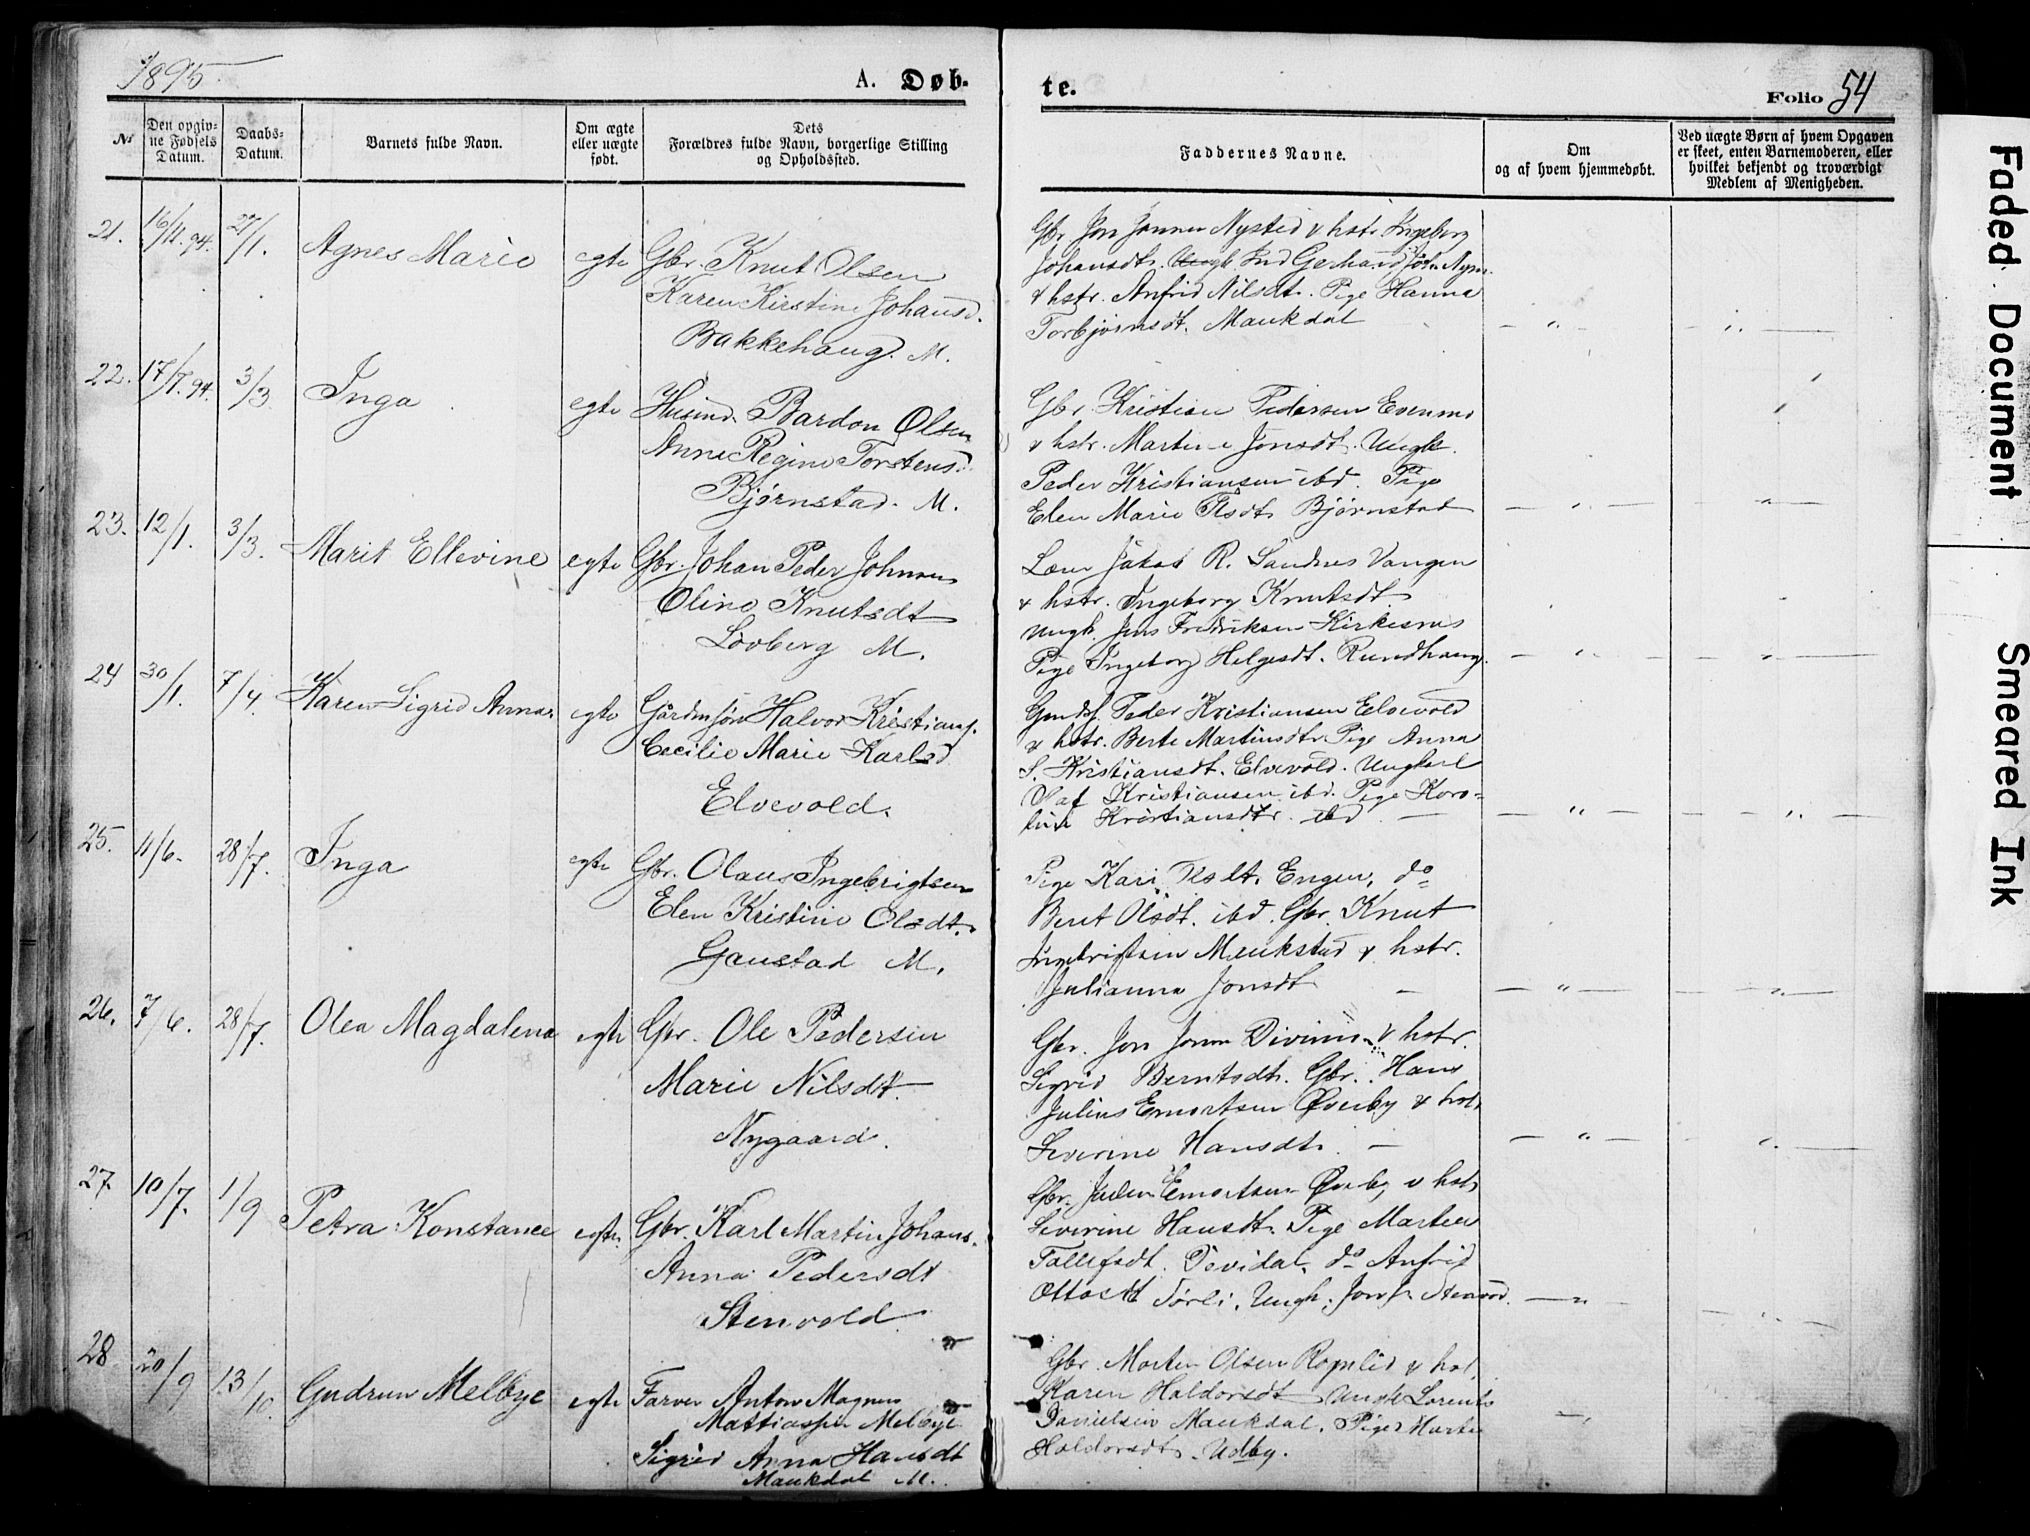 1895.
A. Døb-
te.
Folio 54
№
Den opgivne Fødsels Datum.
Daabs-Datum.
Barnets fulde Navn.
Om ægte eller uægte født.
Dets Forældres fulde Navn, borgerlige Stilling og Opholdssted.
Faddernes Navne.
Om og af hvem hjemmedøbt.
Ved uægte Børn af hvem Opgaven er skeet, enten Barnemoderen, eller hvilket bekjendt og troværdigt Medlem af Menigheden.
21. 16/11.94. 27/1. Agnes Marie egte Gbr. Knut Olsen
Karen Kirstine Johansd.
Bakkehaug. M.
Gbr Jon Jonsen Nysted & hstr. Ingeborg
Johansdtr. Ind Gerhard Joh.
& hstr. Anfrid Nilsdt. Pige Hanna
Torbjørnsdt. Maukdal
22. 17/7.94. 3/3. Inga egte Husmd. Bardon Olsen
Anne Regine Torstensd.
Bjørnstad. M.
Gbr Kristian Pedersen Evenmo
& hstr. Martine Jonsdt. Ungk.
Peder Kristiansen ibd. Pige
Elen Marie Bjørnstad
23. 12/1. 3/3. Marit Ellevine egte Gbr. Johan Peder Johnsen
Oline Knutsdt
Løvberg M.
Lærer Jakob R. Sandnes Vangen
& hstr. Ingeborg Knutsdt.
Ungk. Jens Fredriksen Kirkesnes
Pige Ingeborg Helgesdt. Rundhaug.
24 30/1. 7/4. Karen Sigrid Anna egte Gårdmsøn Halvor Kristians.
Cecilie Marie Karlsd
Elvevold.
Peder Kristiansen Elvevold
& hstr. Berte Martinsdtr. Pige Anna
S. Kristiansdt. Elvevold. Ungkarl
Olaf Kristiansen ibd. Pige Karo=
line Kristiansdtr. ibd
25. 4/6. 28/7. Inga egte Gbr. Olaus Ingebrigtsen
Elen Kristine Olsdt.
Gaustad M.
Pige Kari Engen, do
Berit Olsdt. ibd. Gbr. Knut
Ingebrigtsen Maukstad & hstr.
Julianna Jonsdt
26. 7/6. 28/7. Olea Magdalena egte Gbr. Ole Pedersen
Marie Nilsdt.
Nygaard.
Gbr. Jon Jonsen & hstr.
Sigrid Berntsdtr. Gbr. Hans
Julius Enertsen Øverby & hstr
Severine Hansdtr.
27. 10/7. 1/9 Petra Konstance egte. Gbr. Karl Martin Johans.
Anna Pedersdt
Stenvold.
Gbr. Enertsen Øverby & hstr
Severine Hansdtr. Pige Martea
Tollefsdt. Devidal, do Anfrid
Ottosdt
28. 20/9 13/10. Gudrun Melbye egte Farver Anton Magnus
Mattiassen Melbye
Sigrid Anna Hansdt
Maukdal M.
Gbr. Morten Olsen Rognlid & hst.
Karen Haldorsdt Ungk Lorents
Danielsen Maukdal. Pige Marte
Haldorsdt. Udby.
Faded Document
Smeared Ink